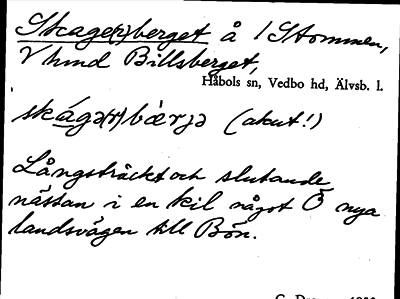 Skage(r)berget å / Stommen,
V hmd Billsberget,
Håbols sn, Vedbo hd, Älvsb. l.
skágə(r)bærjə (akut!)
Långsträckt och slutande
nästan i en kil något Ö nya
landsvägen till Bön.